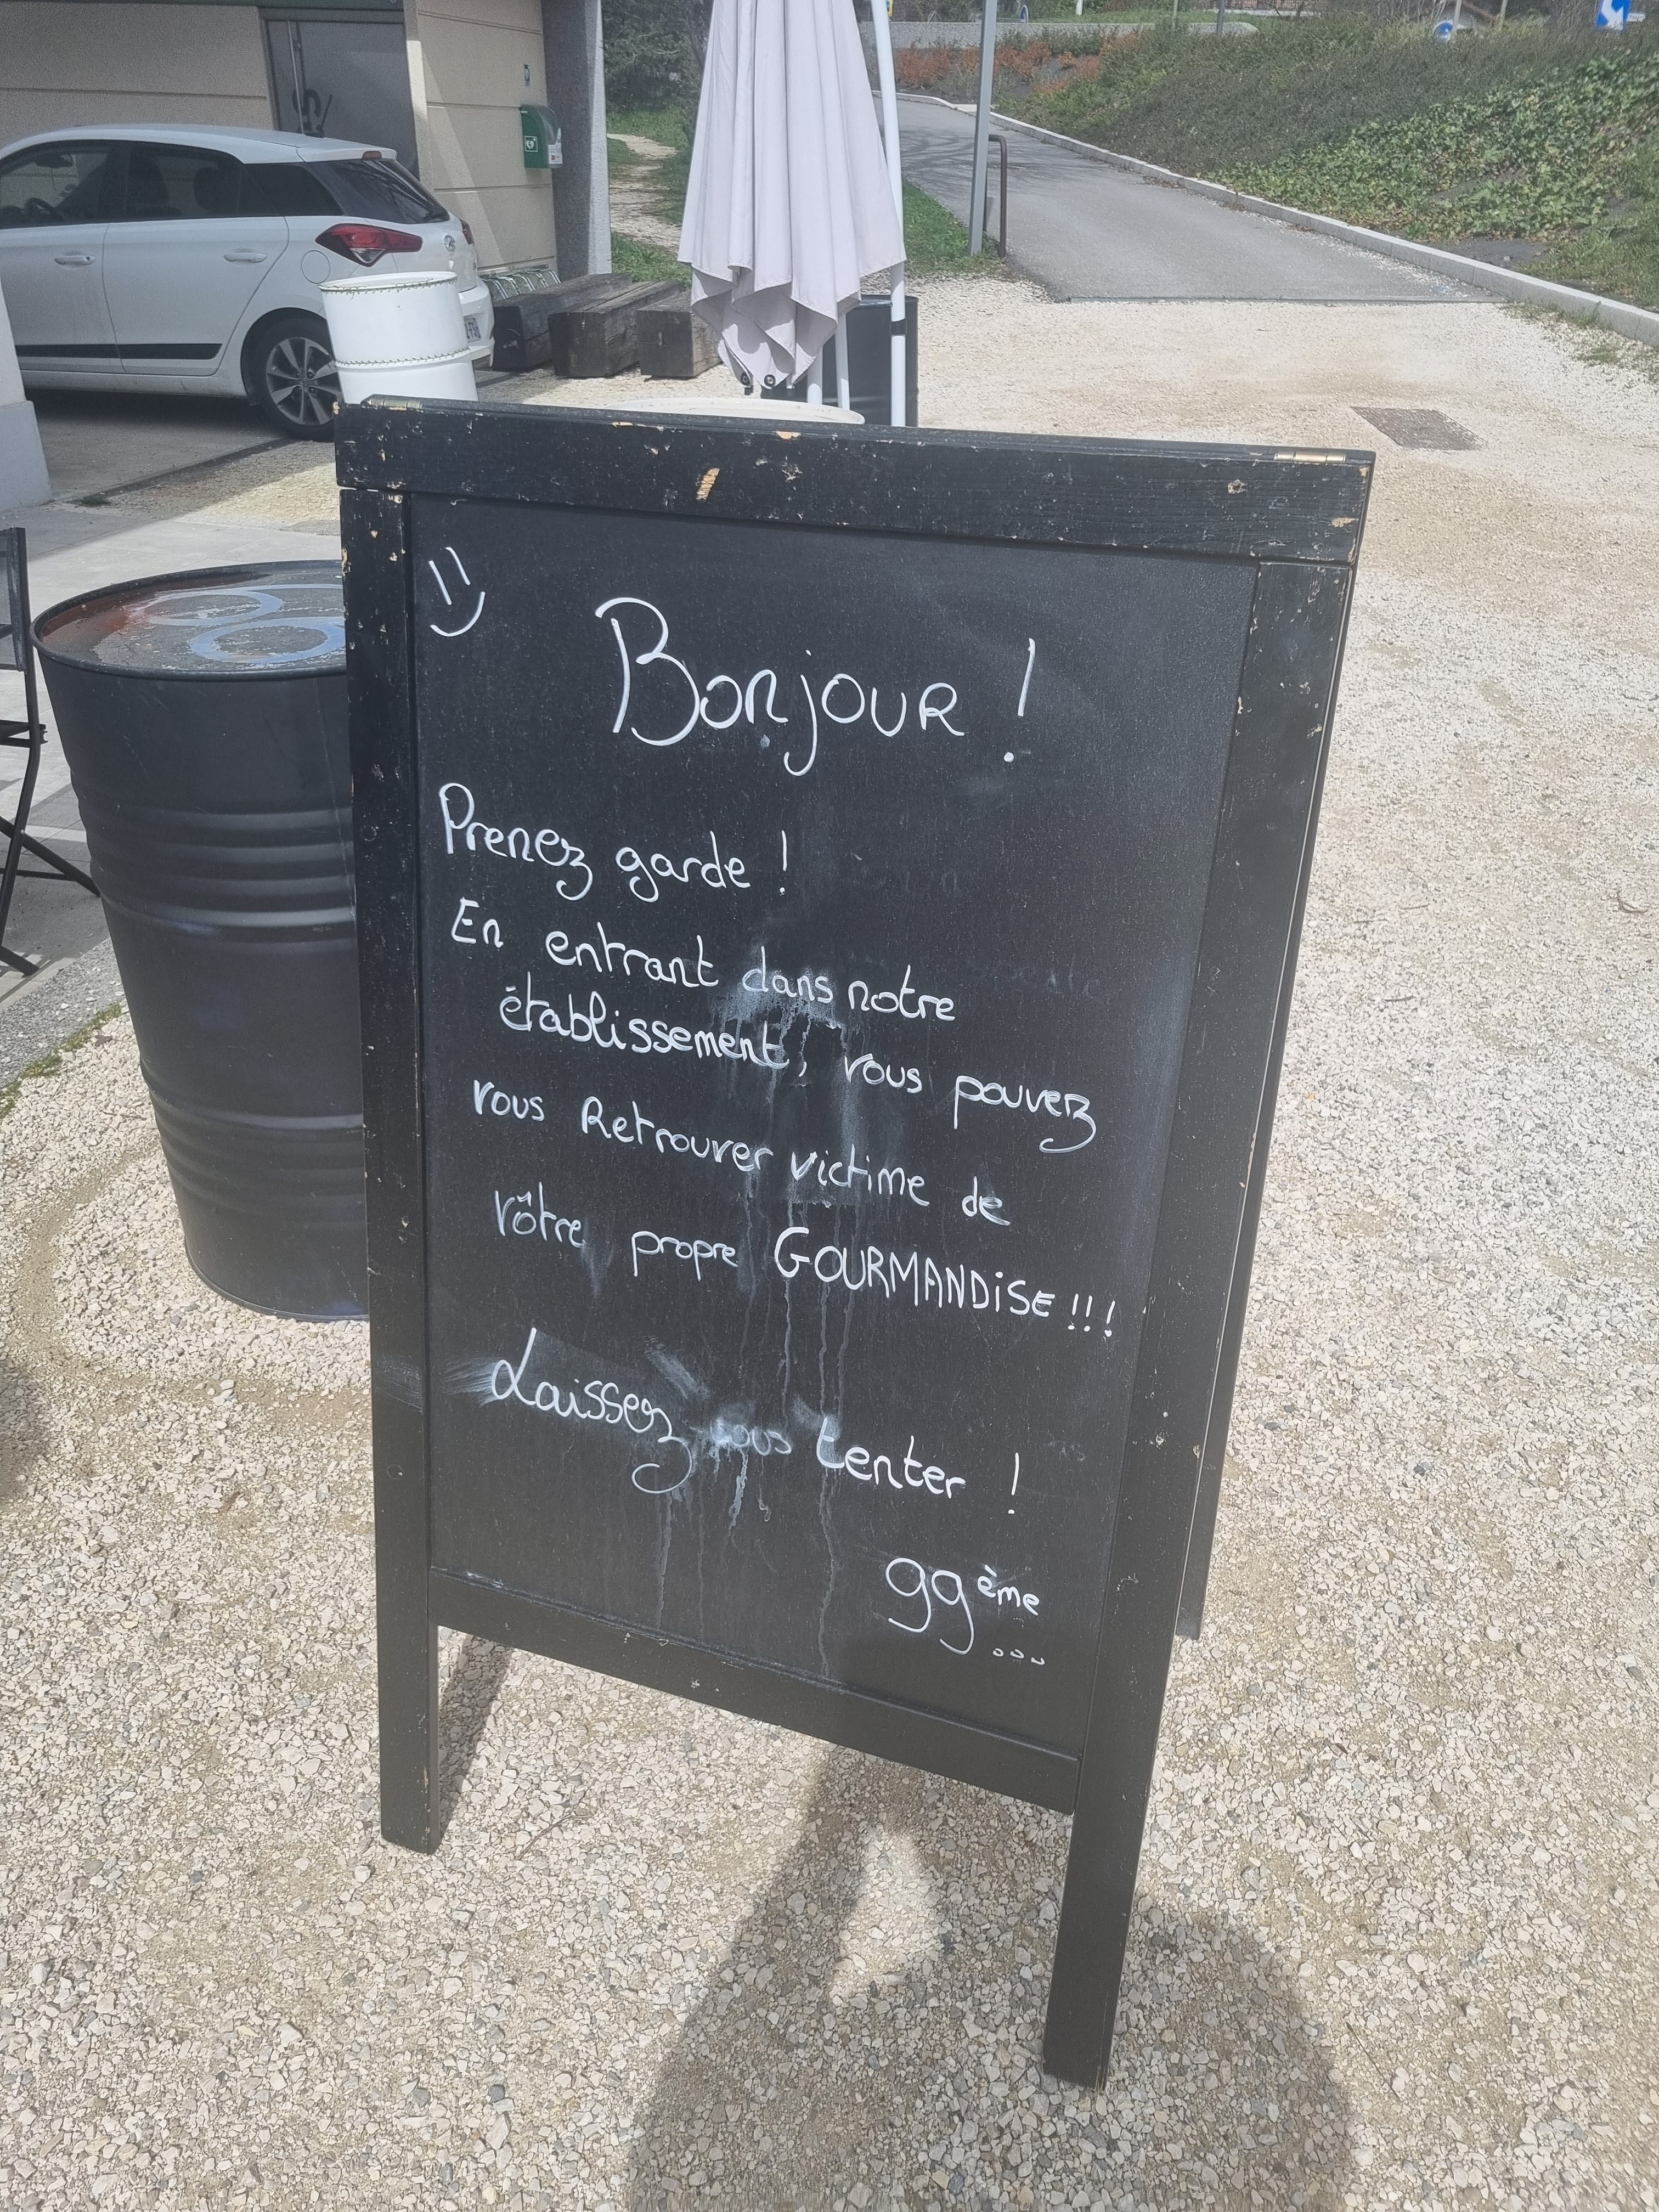 Bonjour !
Prenez garde !
En entrant dans notre
établissement, vous pouvez
vous Retrouver victime de
vôtre propre GOURMANDISE !!!
Laissez vous tenter !
gg ème
...